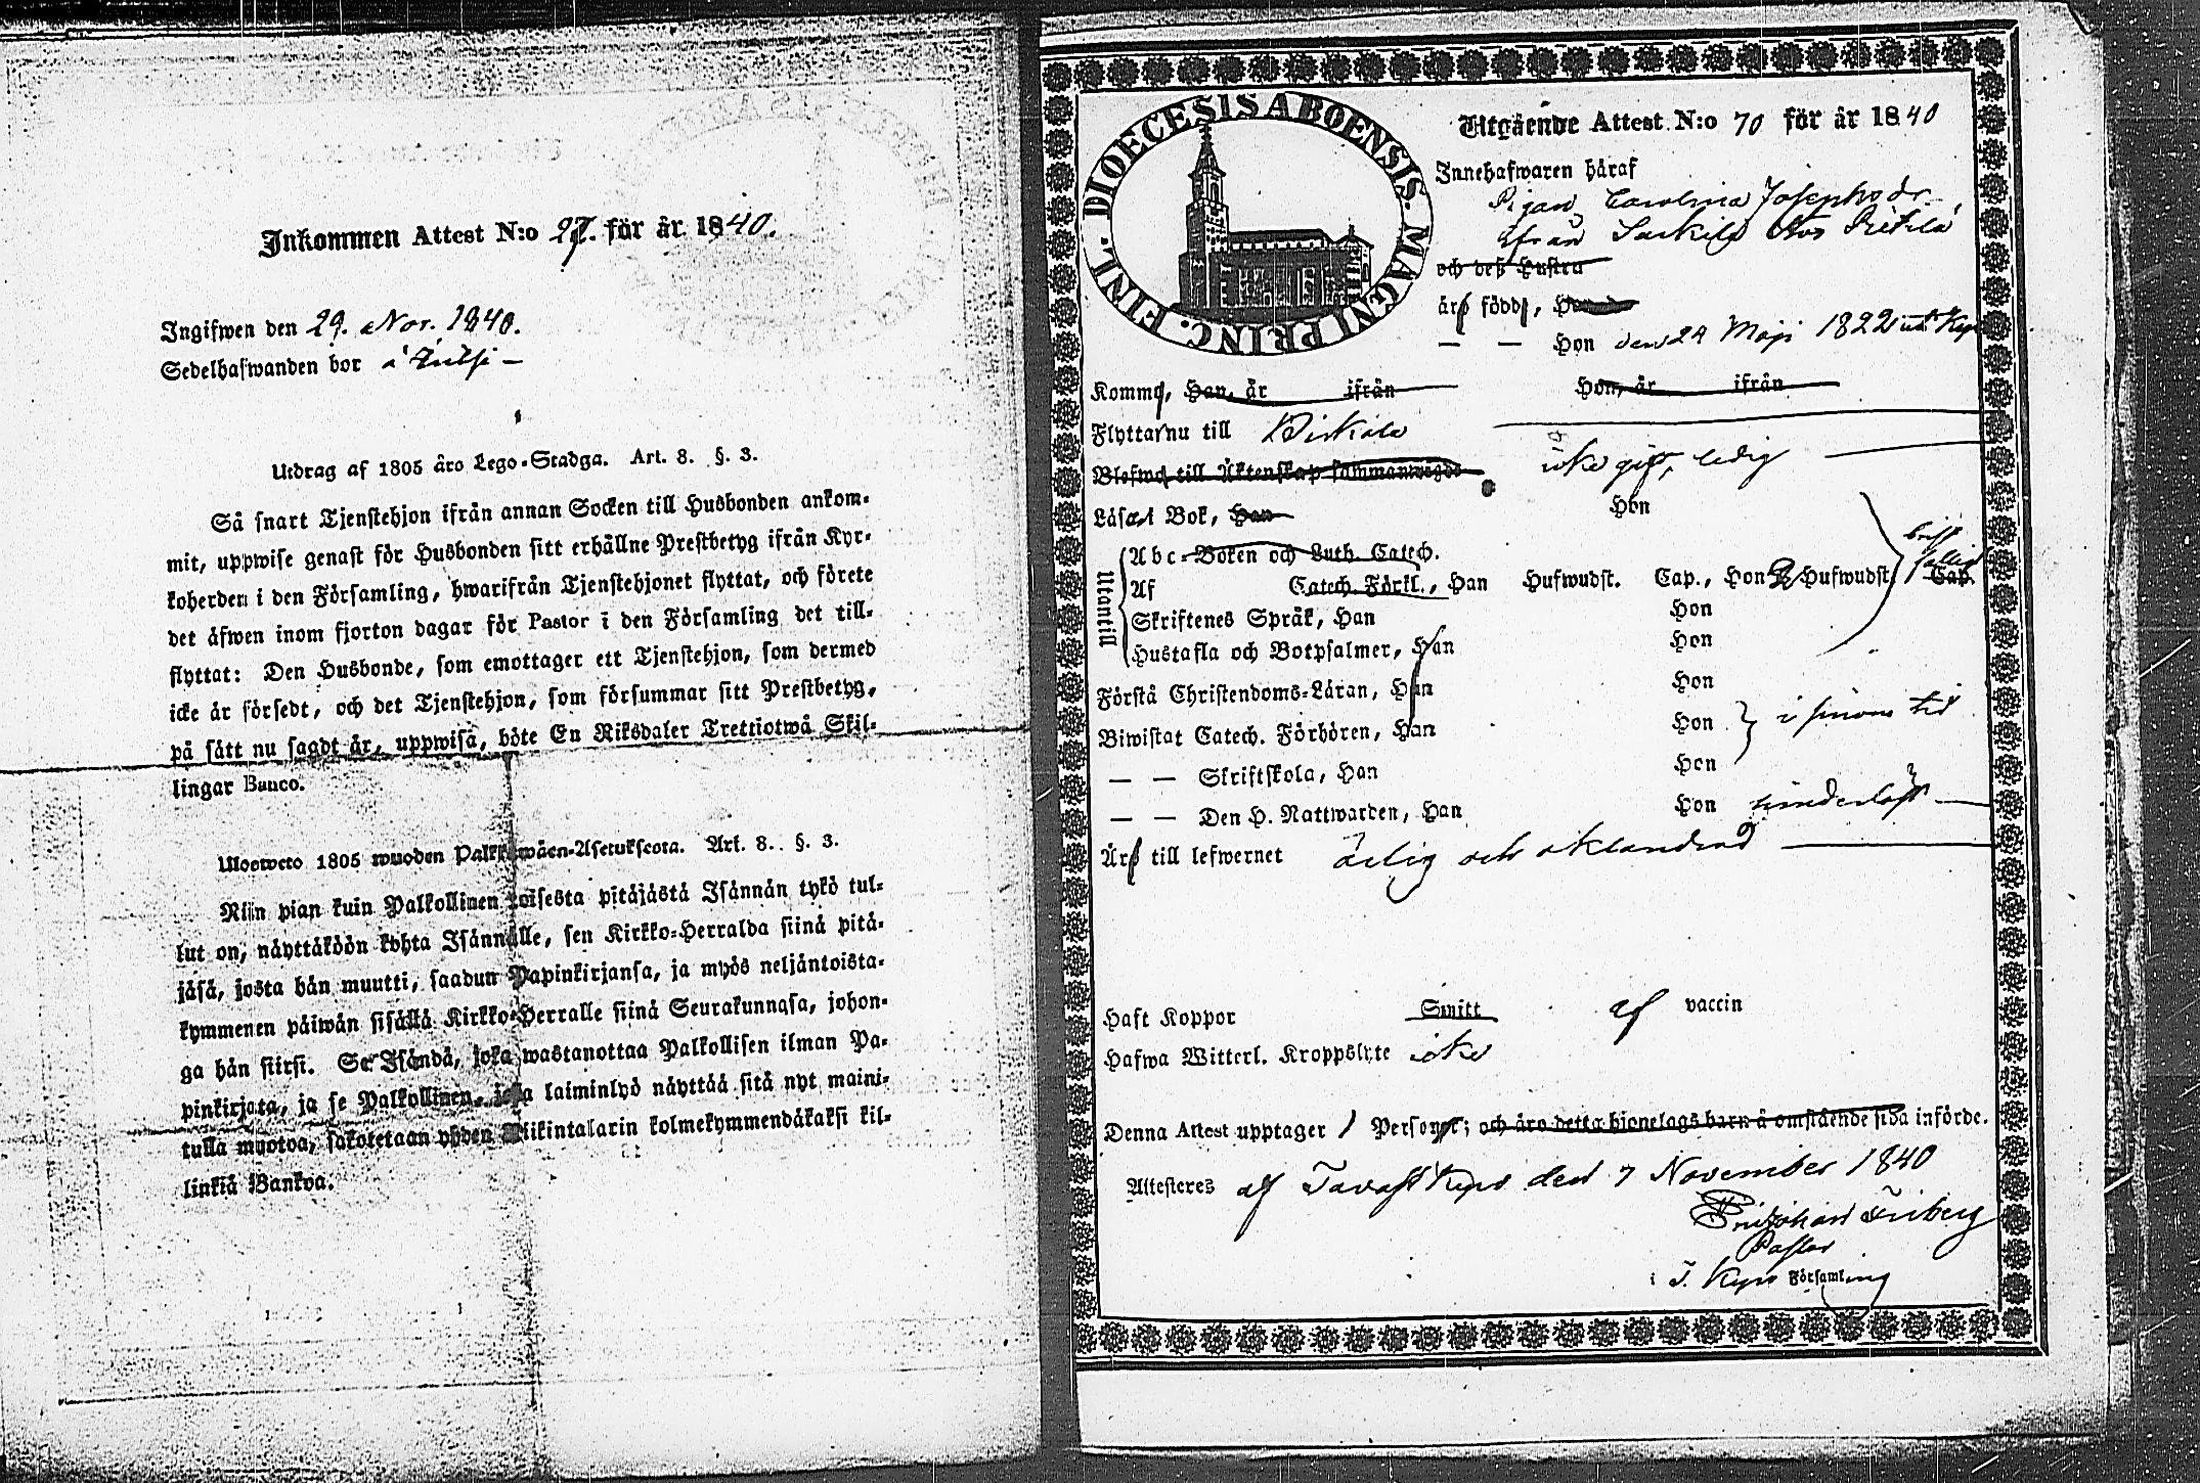 Inkommen Attest N:o 27. för år 1840.
Ingifwen den 29. Nov. 1840.
Sedelhafwanden bor å
Utdrag af 1805 års Lego-Stadga. Art. 8. §. 3.
Så snart Tjenstehjon ifrån annan Socken till Husbonden ankom-
mit, uppwise genast för Husbonden sitt erhållne Prestbetyg ifrån Kyr-
koherden i den Församling, hwarifrån Tjenstehjonet flyttat, och förete
det äfwen inom fjorton dagar för Pastor i den Församling det till-
flyttat: Den Husbonde, som emottager ett Tjenstehjon, som dermed
icke är försedt, och det Tjenstehjon, som försummar sitt Prestbetyg,
på sätt nu sagdt är, uppwisa, böte En Riksdaler Trettiotwå Skil-
lingar Banco.
Uloswcto 1805 wuoden Palkkawäen-Asetuksesta. Art. 8. §. 3.
Niin pian kuin Palkollinen toisesta pitäjästä Isännän tykö tul-
lut on, näyttäköön kohta Isännälle, sen Kirkko-Herralda siinä pitä-
jäsä, josta hän muutti, saadun Papinkirjansa, ja myös neljäntoista-
kymmenen päiwän sisällä Kirkko-Herralle siinä Seurakunnasa, johon-
ga hän siirsi. Se Isändä, joka wastanottaa Palkollisen ilman Pa-
pinkirjata, ja se Palkollinen, joka laiminlyö näyttää sitä nyt maini-
tulla muotoa, sakotetaan yhden Riikintalarin kolmekymmendäkaksi kil-
linkiä Bankoa.
DIOECESIS ABOENSIS. MAGNI PRINC. FINL.
Utgående Attest N:o 70 för år 1840
Innehafwaren håraf
Pigan Carolina Josephsdr
ifrån Sarkila
och deß Hustru
äro född,
— — Hon den 24 Maji 1822 uti Kyro
Komma, Han, år ifrån Hon, år ifrån
Flyttar nu till Birkala
Blefwo till Äktenskap sammanwigde icke gift, ledig
Läsa i Bok, Han Hon
Utantill
Abc-Boken och Luth. Catech.
Af Catech. Förkl., Han Hufwudst. Cap., Hon 2 Hufwudst. Cap.
Skriftenes Språk, Han Hon
Hustafla och Botpsalmer, Han Hon
Förstå Christendoms-Läran, Han Hon
Biwistat Catech. Förhören, Han Hon i sinom tid
— — Skriftskola, Han Hon
— — Den H. Nattwarden, Han Hon
Äro till lefwernet ärlig och oklandrad
Haft Koppor Smitt af vaccin
Hafwa Witterl. Kroppslyte icke
Denna Attest upptager 1 Personer; och äro detta hjonelags barn å omstående sida införde.
Attesteres af Tavast Kyro den 7 November 1840
Friberg
Pastor
i T. Kyro Församling